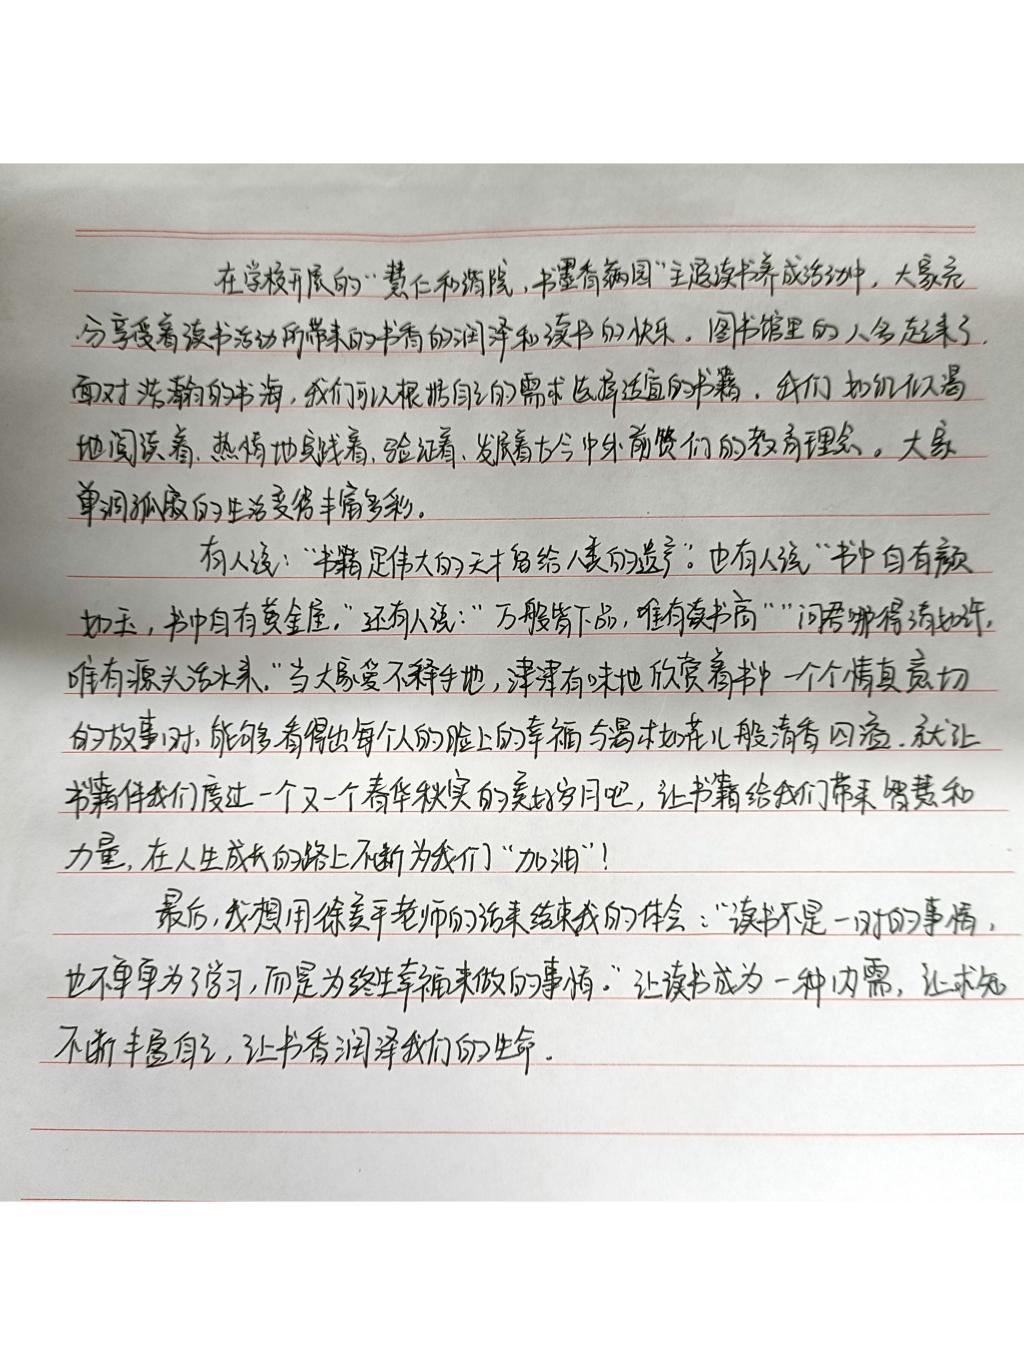 在学校开展的“慧仁和谐院,书墨香满园”主题读书养成活动中,大家充
分享受着读书活动所带来的书香的润泽和读书的快乐。图书馆里的人多起来了,
面对浩瀚的书海,我们可以根据自己的需求选择适宜的书籍。我们如饥似渴
地阅读着、热情地实践着、验证着、发展着古今中外前贤们的教育理念。大家
单调孤寂的生活变得丰富多彩。
有人说:“书籍是伟大的天才留给人类的遗产”。也有人说“书中自有颜
如玉,书中自有黄金屋。”还有人说:“万般皆下品,唯有读书高”“问君哪得清如许,
唯有源头活水来。”当大家爱不释手地,津津有味地欣赏着书中一个个情真意切
的故事时,能够看得出每个人的脸上的幸福与渴求如花儿般清香四溢.就让
书籍伴我们度过一个又一个春华秋实的美好岁月吧,让书籍给我们带来智慧和
力量,在人生成长的路上不断为我们“加油”!
最后,我想用徐美平老师的话来结束我的体会:“读书不是一时的事情,
也不单单为了学习,而是为终生幸福来做的事情。”让读书成为一种内需,让求知
不断丰盈自己,让书香润泽我们的生命.